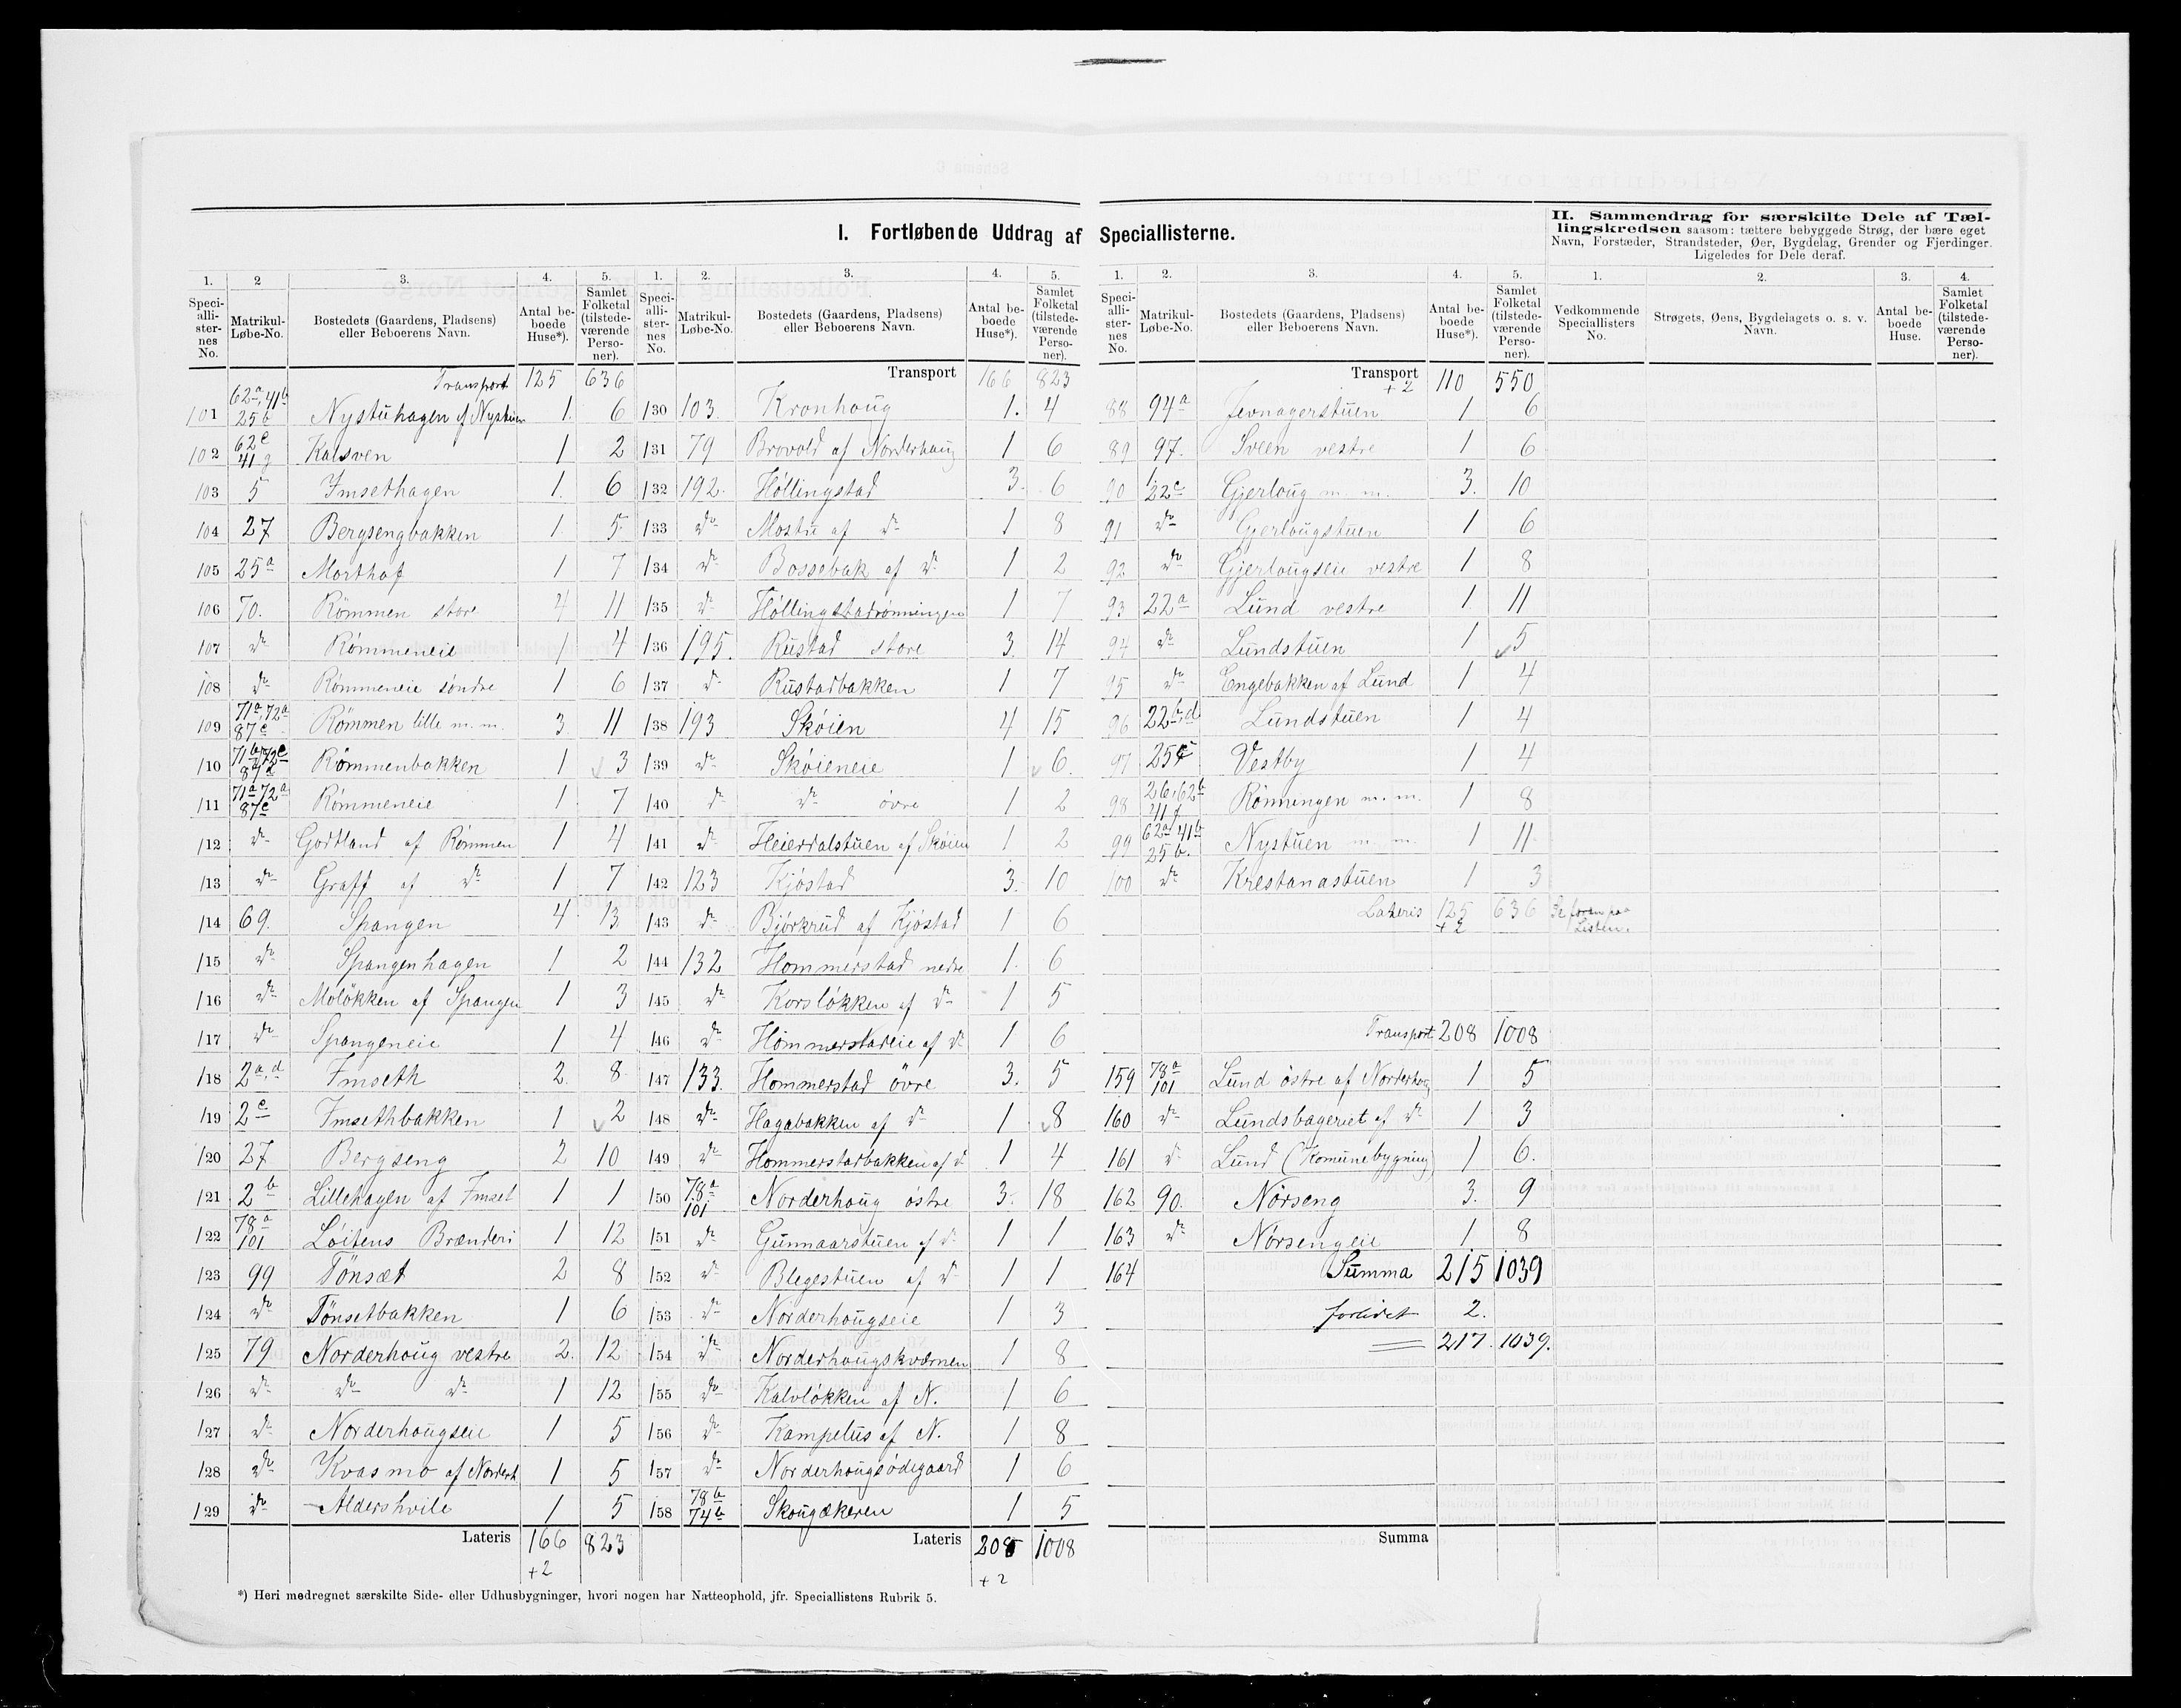 I. Fortløbende Uddrag af Speciallisterne.
II. Sammendrag for særskilte Dele af Tællingskredsen saasom: tættere bebyggede Strøg, der bære eget
Navn, Forstæder, Strandsteder, Øer, Bygdelag, Grender og Fjerdinger.
Ligeledes for Dele deraf.
1. 2 3. 4. 5.
Speciallisternes No. Matrikul-Løbe-No. Bostedets (Gaardens, Pladsens) eller Beboerens Navn. Antal beboede Huse*). Samlet Folketal (tilstedeværende Personer).
Transport 125 636
101 62a, 41b 25b Nystuhagen af Nystuen 1. 6
102 62c 41g Kalsven 1 2
103 5 Imsethagen 1. 6
104 27 Bergsengbakken 1. 5
105 25a Morthaf 1 7
106 70. Römmen store 4 11
107 do Römmeneie 1 4
108 do Römmeneie söndre 1 6
109 71a, 72a 87c Römmen lille m. m. 3 11
110 Römmenbakken 1 3
111 71a 72a 87c Römmeneie 1 7
112 do Godtland af Römmen 1 4
113 do Graff af do 1 7
114 69. Spangen 4 13
115 do Spangenhagen 1 2
116 do Molökken af Spangen 1 3
117 do Spangeneie 1 4
118 2a,d Imseth 2. 8
119 2c Imsethbakken 1 2
120 27 Bergseng 2 10
121 2b Lillehagen af Imset 1 1
122 78a 101 Löitens Brænderi 1 12
123 99 Tönsæt 2 8
124 do Tönsetbakken 1 6
125 79 Norderhoug vestre 2. 12
126 do do do 1 12
127 do Norderhougseie 1 5
128 do Kvasmo af Norderh 1 5
129 do Aldershvile 1 5
Lateris 166 823
+2
1. 2. 3. 4. 5.
Speciallisternes No. Matrikul-Løbe-No. Bostedets (Gaardens, Pladsens) eller Beboerens Navn. Antal beboede Huse*). Samlet Folketal (tilstedeværende Personer).
Transport 166 823
130 103. Kronhoug 1. 4
131 79 Brovold af Norderhaug 1 6
132 192. Höllingstad 3. 6
133 do Mostu af do 1 8
134 do Bossebak af do 1 2
135 do Höllingstadrønningen 1 7
136 195. Rustad store 3. 14
137 do Rustadbakken 1 7
138 193 Sköien 4 15
139 do Sköieneie 1 6.
140 do do övre 1 2
141 do Heierdalstuen af Sköien 1 2
142 123 Kjöstad 3. 10
143 do Björkrud af Kjöstad 1 6
144 132 Hommerstad nedre 1. 6
145 do Korslökken af do 1 5
146 do Hommerstadeie af do 1 6
147 133. Hommerstad övre 3. 5
148 do Hagabakken af do 1 8
149 do Hommerstadbakken af do 1 4
150 78a 101 Norderhoug östre 3. 18
151 do Gunnaarstuen af do 1 1
152 do Blegestuen af do 1 1
153 do Norderhougseie 1 3
154 do Norderhougskværnen 1 8
155 do Kalvlökken af N. 1 6
156 do Kampelus af N. 1 8
157 do Norderhougsödegaard 1 6
158 78b 74b Skougækeren 1 5
Lateris 208 1008
+2
1. 2. 3. 4. 5.
Speciallisternes No. Matrikul-Løbe-No. Bostedets (Gaardens, Pladsens) eller Beboerens Navn. Antal beboede Huse*). Samlet Folketal (tilstedeværende Personer).
Transport +2 110 550
88 94a Jevnagerstuen 1 6
89 97. Sveen vestre 1 6
90 22c Gjerloug m. m. 3. 10
91 do Gjerlougstuen 1 6
92 do Gjerlougseie vestre 1 8
93 22a Lund vestre 1. 11
94 do Lundstuen 1 5
95 do Engebakken af Lund 1 4
96 22b,d Lundstuen 1 4
97 Vestby 1 4
98 26, 62b 41f Rönningen m. m. 1 8
99 62a 41b 25b. Nystuen m. m. 1 11
100 do Krestanastuen 1 3
Lateris 125 636 Se foran paa
+2 Listen.
Transport 208 1008
159 78a 101 Lund östre af Norderhoug 1 5
160 do Lundsbageriet af do 1 3
161 do Lund (Komunebygning) 1 6.
162 90. Nörseng 3. 9
163 do Nörsengeie 1 8
164 Summa 215 1039
2.
217. 1039.
Summa
1. 2. 3. 4.
Vedkommende Speciallisters No. Strøgets, Øens, Bygdelagets o. s. v. Navn. Antal beboede Huse. Samlet Folketal (tilstedeværende Personer).
*) Heri medregnet særskilte Side- eller Udhusbygninger, hvori nogen har Natteophold, jfr. Speciallistens Rubrik 5.